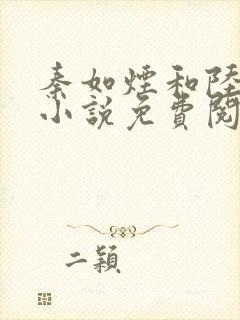 秦如煙和陸
小說免費閱
二穎